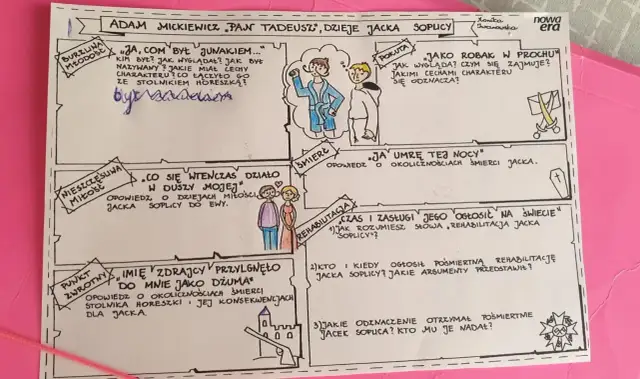 ADAM MICKIEWICZ "PAN TADEUSZ", DZIEJE JACKA SOPLICY
nowa
era
BURZLIWA
MŁODOŚĆ
"JA, COM BYŁ JUNAKIEM..."
KIM BYŁ? JAK WYGLĄDAŁ? JAK BYŁ
NAZYWANY? JAKIE MIAŁ CECHY
CHARAKTERU? CO ŁĄCZYŁO GO
ZE STOLNIKIEM HORESZKĄ?
był
POKUTA
"JAKO ROBAK W PROCHU"
JAK WYGLĄDA? CZYM SIĘ ZAJMUJE?
JAKIMI CECHAMI CHARAKTERU
SIĘ ODZNACZA?
NIESZCZĘŚLIWA
MIŁOŚĆ
"CO SIĘ WTENCZAS DZIAŁO
W DUSZY MOJEJ"
OPOWIEDZ O DZIEJACH MIŁOŚCI
JACKA SOPLICY DO EWY.
ŚMIERĆ
"JA UMRĘ TEJ NOCY"
OPOWIEDZ O OKOLICZNOŚCIACH ŚMIERCI JACKA.
PUNKT
ZWROTNY
"IMIĘ ZDRAJCY PRZYLGNĘŁO
DO MNIE JAKO DŻUMA"
OPOWIEDZ O OKOLICZNOŚCIACH ŚMIERCI
STOLNIKA HORESZKI I JEJ KONSEKWENCJACH
DLA JACKA.
REHABILITACJA
"CZAS I ZASŁUGI JEGO OGŁOSIĆ NA ŚWIECIE"
1) JAK ROZUMIESZ SŁOWA "REHABILITACJA JACKA
SOPLICY"?
2) KTO I KIEDY OGŁOSIŁ POŚMIERTNĄ REHABILITACJĘ
JACKA SOPLICY? JAKIE ARGUMENTY PRZEDSTAWIŁ?
3) JAKIE ODZNACZENIE OTRZYMAŁ POŚMIERTNIE
JACEK SOPLICA? KTO MU JE NADAŁ?